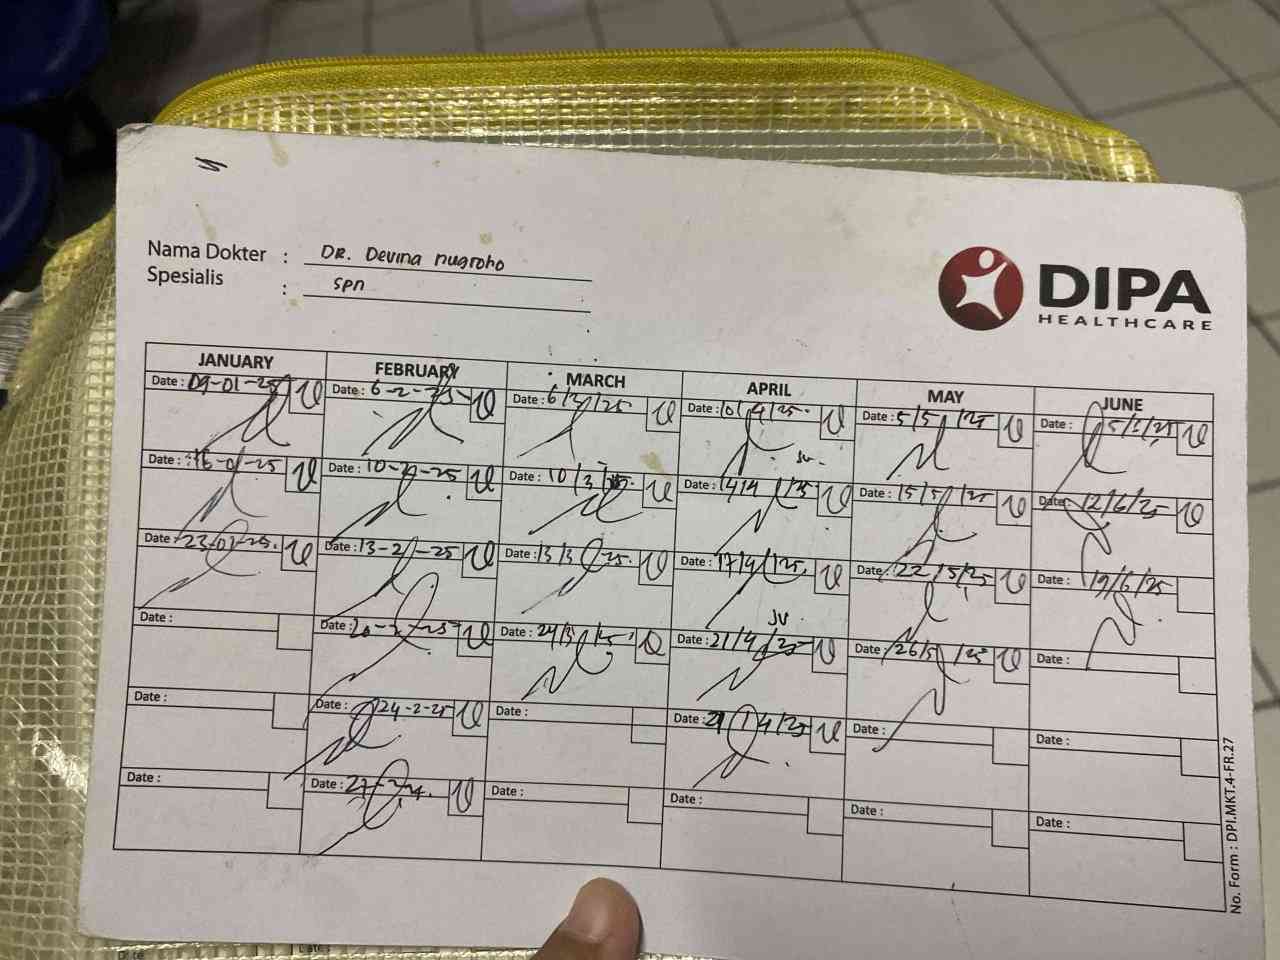 Nama Dokter : DR. Devina nugroho
Spesialis : spn
DIPA
HEALTHCARE
JANUARY FEBRUARY MARCH APRIL MAY JUNE
Date : 09-01-25 Date : 6-2-25 Date : 6/3/25 Date : 10/4/25 Date : 5/5/25 Date : 5/6/25
JV
Date : 16-01-25 Date : 10-2-25 Date : 10/3/25 Date : 14/4/25 Date : 15/5/25 Date : 12/6/25
Date : 23-01-25. Date : 13-2-25 Date : 13/3/25. Date : 17/4/25. Date : 22/5/25 Date : 19/6/25
JV
Date : Date : 20-2-25 Date : 24/3/25 Date : 21/4/25 Date : 26/5/25 Date :
Date : Date : 24-2-25 Date : Date : 29/4/25 Date : Date :
Date : Date : 27-2- Date : Date : Date : Date :
No. Form : DPI.MKT.4-FR.27
Date :